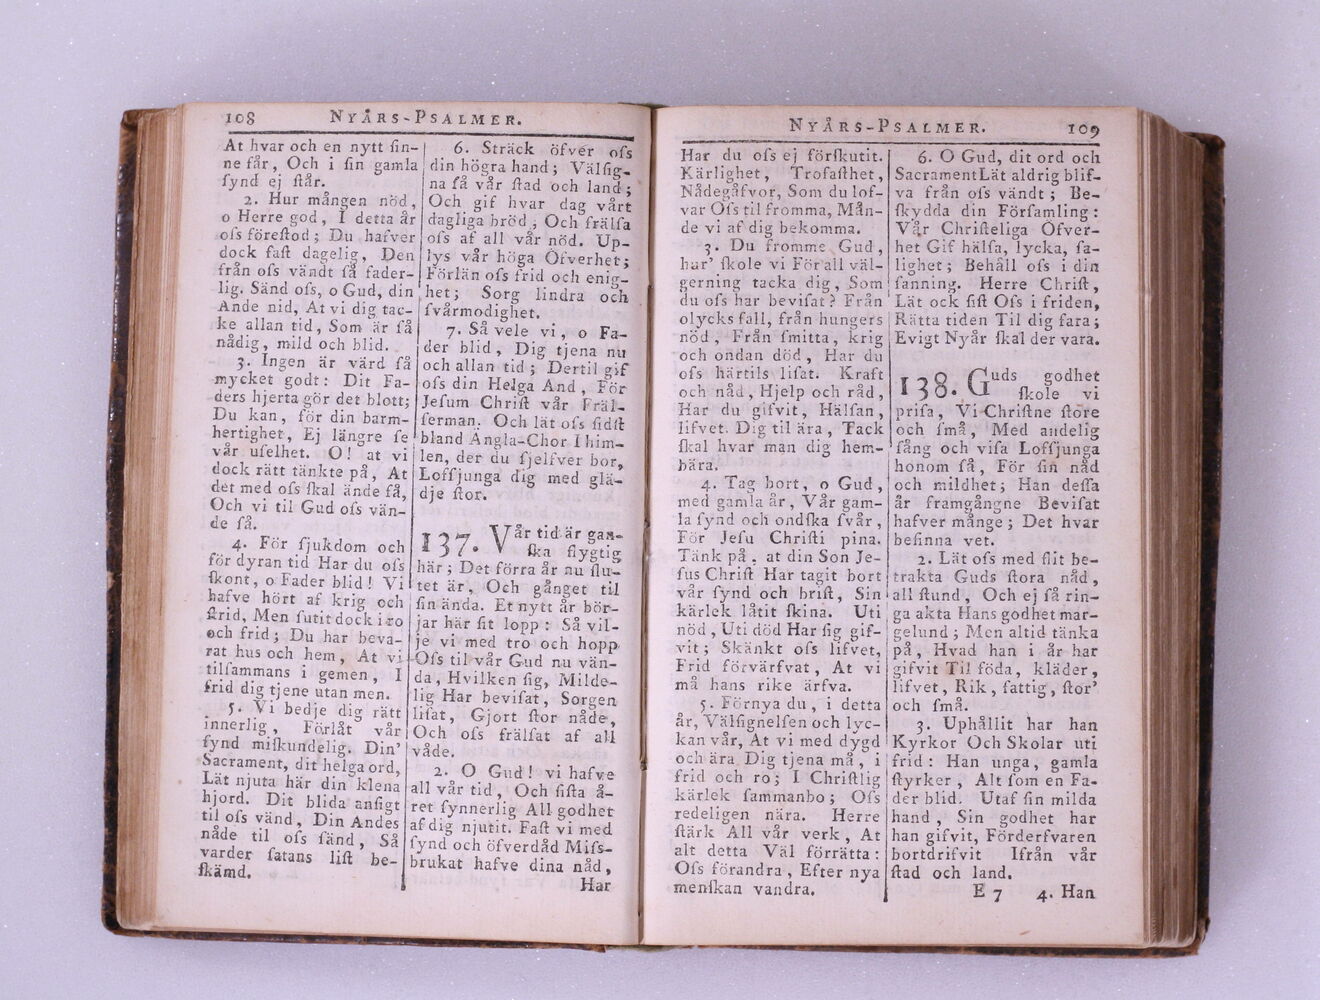 108 NYÅRS-PSALMER.
At hvar och en nytt ſin-
ne får, Och i ſin gamla
ſynd ej ſtår.
2. Hur mången nöd,
o Herre god, I detta år
oſs föreſtod; Du hafver
dock faſt dagelig, Den
från oſs vändt få fader-
lig. Sänd oſs, o Gud, din
Ande nid, At vi dig tac-
ke allan tid, Som är få
nådig, mild och blid.
3. Ingen är värd få
mycket godt: Dit Fa-
ders hjerta gör det blott;
Du kan, för din barm-
hertighet, Ej längre ſe
vår uſelhet. O! at vi
dock rätt tänkte på, At
det med oſs ſkal ände få,
Och vi til Gud oſs vän-
de få.
4. För ſjukdom och
för dyran tid Har du oſs
ſkont, o Fader blid! Vi
hafve hört af krig och
ſtrid, Men ſutit dock i ro
och frid; Du har beva-
rat hus och hem, At vi
tilſammans i gemen, I
frid dig tjene utan men.
5. Vi bedje dig rätt
innerlig, Förlåt vår
ſynd miſkundelig. Din'
Sacrament, dit helga ord,
Lät njuta här din klena
hjord. Dit blida anſigt
til oſs vänd, Din Andes
nåde til oſs ſänd, Så
varder ſatans liſt be-
ſkämd.
6. Sträck öfver oſs
din högra hand; Välſig-
na få vår ſtad och land;
Och gif hvar dag vårt
dagliga bröd, Och frälſa
oſs af all vår nöd. Up-
lys vår höga Öfverhet;
Förlän oſs frid och enig-
het; Sorg lindra och
ſvårmodighet.
7. Så vele vi, o Fa-
der blid, Dig tjena nu
och allan tid; Dertil gif
oſs din Helga And, För
Jeſum Chriſt vår Fräl-
ſerman. Och lät oſs ſidſt
bland Ängla-Chor I him-
len, der du ſjelfver bor,
Loffſjunga dig med glä-
dje ſtor.
137. Vår tid är gan-
ſka flygtig
här; Det förra år nu ſlu-
tet är, Och gånget til
ſin ända. Et nytt år bör-
jar här ſit lopp: Så vil-
je vi med tro och hopp
Oſs til vår Gud nu vän-
da, Hvilken ſig, Milde-
lig Har beviſat, Sorgen
liſat, Gjort ſtor nåde,
Och oſs frälſat af all
våde.
2. O Gud! vi hafve
all vår tid, Och ſiſta å-
ret ſynnerlig All godhet
af dig njutit. Faſt vi med
ſynd och öfverdåd Miſs-
brukat hafve dina nåd,
Har
NYÅRS-PSALMER. 109
Har du oſs ej förſkutit.
Kärlighet, Trofaſthet,
Nådegåfvor, Som du lof-
var Oſs til fromma, Mån-
de vi af dig bekomma.
3. Du fromme Gud,
hur' ſkole vi För all väl-
gerning tacka dig, Som
du oſs har beviſat? Från
olycksfall, från hungers
nöd, Från ſmitta, krig
och ondan död, Har du
oſs härtils liſat. Kraft
och nåd, Hjelp och råd,
Har du gifvit, Hälſan,
lifvet. Dig til ära, Tack
ſkal hvar man dig hem-
bära.
4. Tag bort, o Gud,
med gamla år, Vår gam-
la ſynd och ondſka ſvår,
För Jeſu Chriſti pina.
Tänk på, at din Son Je-
ſus Chriſt Har tagit bort
vår ſynd och briſt, Sin
kärlek låtit ſkina. Uti
nöd, Uti död Har ſig gif-
vit; Skänkt oſs lifvet,
Frid förvärfvat, At vi
må hans rike ärfva.
5. Förnya du, i detta
år, Välſignelſen och lyc-
kan vår, At vi med dygd
och ära Dig tjena må, i
frid och ro; I Chriſtlig
kärlek ſammanbo; Oſs
redeligen nära. Herre
ſtärk All vår verk, At
alt detta Väl förrätta:
Oſs förandra, Efter nya
menſkan vandra.
6. O Gud, dit ord och
Sacrament Lät aldrig blif-
va från oſs vändt; Be-
ſkydda din Förſamling:
Vår Chriſteliga Öfver-
het Gif hälſa, lycka, ſa-
lighet; Behåll oſs i din
ſanning. Herre Chriſt,
Lät ock ſiſt Oſs i friden,
Rätta tiden Til dig fara;
Evigt Nyår ſkal der vara.
138. Guds godhet
ſkole vi
priſa, Vi Chriſtne ſtore
och ſmå, Med andelig
ſång och viſa Loffſjunga
honom få, För ſin nåd
och mildhet; Han deſſa
år framgångne Beviſat
hafver månge; Det hvar
beſinna vet.
2. Låt oſs med flit be-
trakta Guds ſtora nåd,
all ſtund, Och ej få rin-
ga akta Hans godhet mar-
gelund; Men altid tänka
på, Hvad han i år har
gifvit Til föda, kläder,
lifvet, Rik, fattig, ſtor'
och ſmå.
3. Uphållit har han
Kyrkor Och Skolar uti
frid: Han unga, gamla
ſtyrker, Alt ſom en Fa-
der blid. Utaf ſin milda
hand, Sin godhet har
han gifvit, Förderfvaren
bortdrifvit Ifrån vår
ſtad och land.
E 7 4. Han